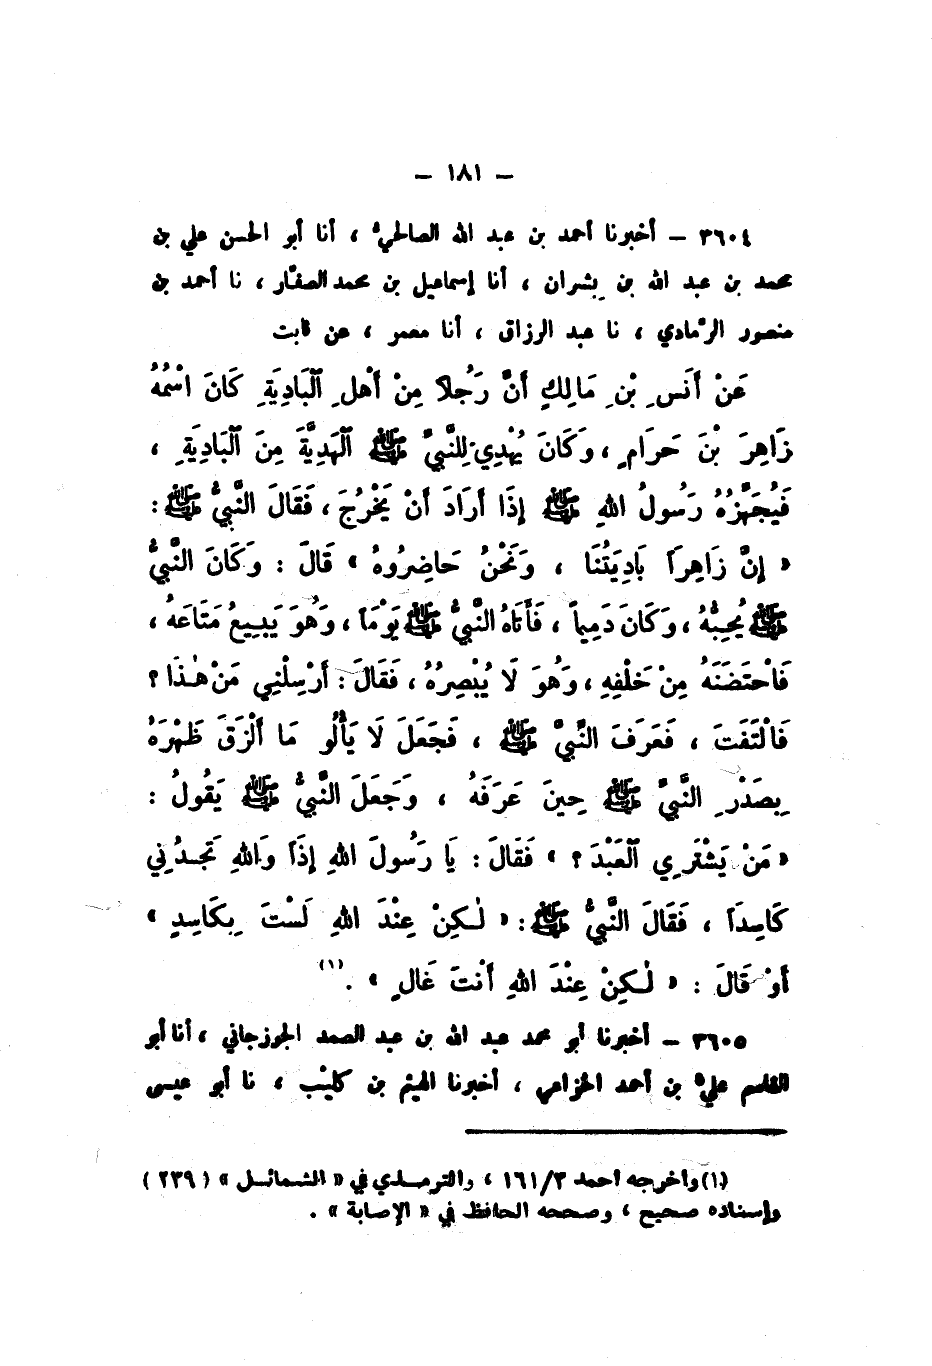 — ١٨١ —
٣٦٠٤ — أخبرنا أحمد بن عبد الله الصالحيُّ ، أنا أبو الحسن علي بن
محمد بن عبد الله بن بشران ، أنا إسماعيل بن محمد الصفَّار ، نا أحمد بن
منصور الرَّمادي ، نا عبد الرزاق ، أنا معمر ، عن ثابت
عَنْ أَنَسِ بْنِ مَالِكٍ أَنَّ رَجُلًا مِنْ أَهْلِ ٱلْبَادِيَةِ كَانَ اسْمُهُ
زَاهِرَ بْنَ حَرَامٍ ، وَكَانَ يُهْدِي لِلنَّبِيِّ ﷺ ٱلْهَدِيَّةَ مِنَ ٱلْبَادِيَةِ ،
فَيُجَهِّزُهُ رَسُولُ اللهِ ﷺ إِذَا أَرَادَ أَنْ يَخْرُجَ ، فَقَالَ النَّبِيُّ ﷺ :
« إِنَّ زَاهِراً بَادِيَتُنَا ، وَنَحْنُ حَاضِرُوهُ » قَالَ : وَكَانَ النَّبِيُّ
ﷺ يُحِبُّهُ ، وَكَانَ دَمِيماً ، فَأَتَاهُ النَّبِيُّ ﷺ يَوْمَاً ، وَهُوَ يَبِيعُ مَتَاعَهُ ،
فَاحْتَضَنَهُ مِنْ خَلْفِهِ ، وَهُوَ لَا يُبْصِرُهُ ، فَقَالَ : أَرْسِلْنِي مَنْ هٰذَا ؟
فَالْتَفَتَ ، فَعَرَفَ النَّبِيَّ ﷺ ، فَجَعَلَ لَا يَأْلُو مَا أَلْزَقَ ظَهْرَهُ
بِصَدْرِ النَّبِيِّ ﷺ حِينَ عَرَفَهُ ، وَجَعَلَ النَّبِيُّ ﷺ يَقُولُ :
« مَنْ يَشْتَرِي ٱلْعَبْدَ ؟ » فَقَالَ : يَا رَسُولَ اللهِ إِذَاً وَاللهِ تَجِدُنِي
كَاسِدَاً ، فَقَالَ النَّبِيُّ ﷺ : « لٰكِنْ عِنْدَ اللهِ لَسْتَ بِكَاسِدٍ »
أَوْ قَالَ : « لٰكِنْ عِنْدَ اللهِ أَنْتَ غَالٍ » . (١)
٣٦٠٥ — أخبرنا أبو محمد عبد الله بن عبد الصمد الجوزجاني ، أنا أبو
القاسم عليُّ بن أحمد الخزاعي ، أخبرنا الهيثم بن كليْب ، نا أبو عيسى
(١) وأخرجه أحمد ١٦١/٣ ، والترمذي في « الشمائل » ( ٢٣٩ )
وإسناده صحيح ، وصححه الحافظ في « الإصابة » .